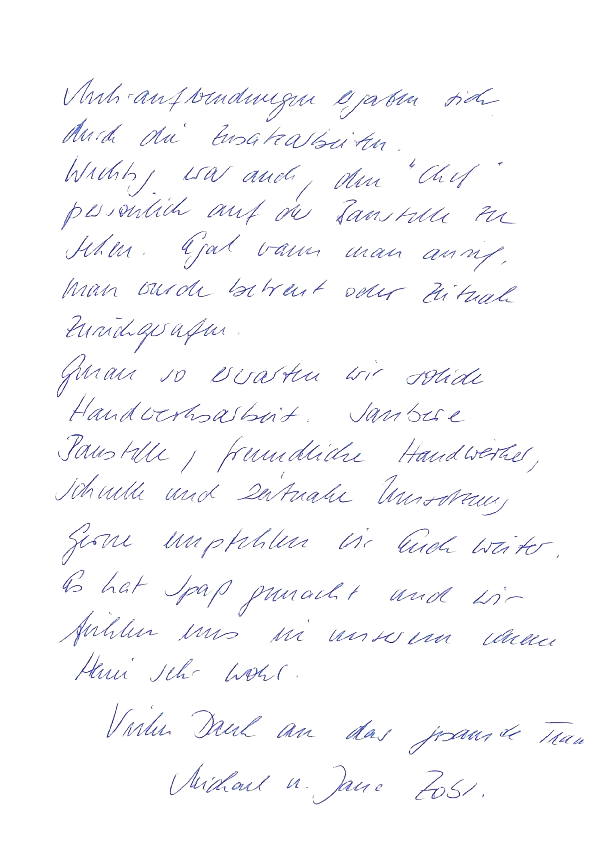 Mehraufwendungen ergaben sich
durch die Zusatzarbeiten.
Wichtig war auch, den "Chef"
persönlich auf der Baustelle zu
sehen. Egal wann man anrief,
man wurde betreut oder zeitnah
zurückgerufen.
Genau so erwarten wir solide
Handwerksarbeit. Saubere
Baustelle, freundliche Handwerker,
schnelle und zeitnahe Umsetzung
Gerne empfehlen wir Euch weiter.
Es hat Spaß gemacht und wir
fühlen uns in unserem neuen
Heim sehr wohl.
Vielen Dank an das gesamte Team
Michael u. Jana